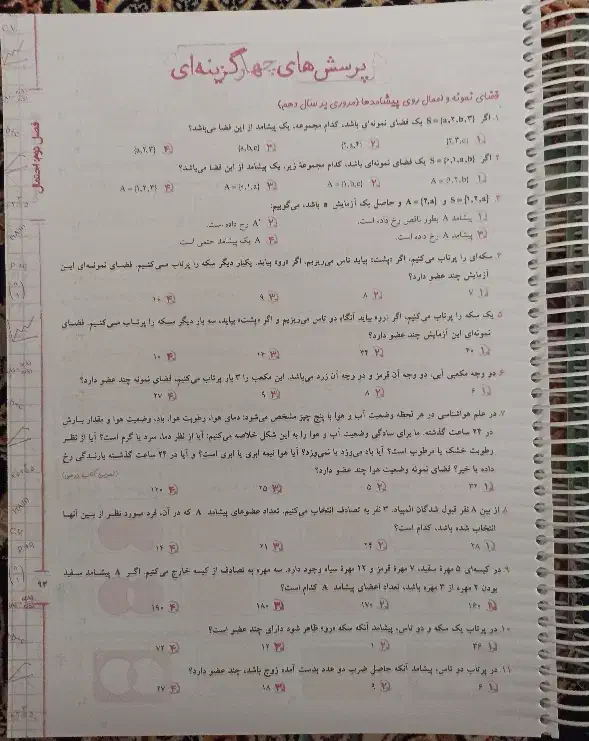 پرسش‌های چهارگزینه‌ای
فضای نمونه و اعمال روی پیشامدها (مروری بر سال دهم)
۱. اگر S = {a,۲,b,۳} یک فضای نمونه‌ای باشد، کدام مجموعه، یک پیشامد از این فضا می‌باشد؟
۱) {۲,۳,c} ۲) ۳) {a,b,c} ۴) {a,۲,۳}
۲. اگر S = {۰,۱,a,b} یک فضای نمونه‌ای باشد، کدام مجموعهٔ زیر، یک پیشامد از این فضا می‌باشد؟
۱) A = {۱,۲,b} ۲) A = {۱,b,c} ۳) A = {۰,۱,a} ۴) A = {۱,۲,۳}
۳. S = {۱,۲,a} و A = {۲,a} و حاصل یک آزمایش a باشد، می‌گوییم:
۱) پیشامد A بطور ناقص رخ داده است. ۲) A' رخ داده است.
۳) پیشامد A رخ داده است. ۴) A یک پیشامد حتمی است
۴. سکه‌ای را پرتاب می‌کنیم، اگر «پشت» بیاید تاس می‌ریزیم. اگر «رو» بیاید، یکبار دیگر سکه را پرتاب می‌کنیم. فضای نمونه‌ای این
آزمایش چند عضو دارد؟
۱) ۷ ۲) ۸ ۳) ۹ ۴) ۱۰
۵. یک سکه را پرتاب می‌کنیم، اگر «رو» بیاید آنگاه دو تاس می‌ریزیم و اگر «پشت» بیاید، سه بار دیگر سکه را پرتاب می‌کنیم. فضای
نمونه‌ای این آزمایش چند عضو دارد؟
۱) ۴۰ ۲) ۴۴ ۳) ۱۴ ۴) ۱۰
۶. دو وجه مکعبی آبی، دو وجه آن قرمز و دو وجه آن زرد می‌باشد. این مکعب را ۳ بار پرتاب می‌کنیم، فضای نمونه چند عضو دارد؟
۱) ۶ ۲) ۸ ۳) ۹ ۴) ۲۷
۷. در علم هواشناسی در هر لحظه وضعیت آب و هوا با پنج چیز مشخص می‌شود: دمای هوا، رطوبت هوا، باد، وضعیت هوا و مقدار بارش
در ۲۴ ساعت گذشته. ما برای سادگی وضعیت آب و هوا را به این شکل خلاصه می‌کنیم: آیا از نظر دما، سرد یا گرم است؟ آیا از نظر
رطوبت خشک یا مرطوب است؟ آیا باد می‌وزد یا نمی‌وزد؟ آیا هوا نیمه ابری یا ابری است؟ و آیا در ۲۴ ساعت گذشته بارندگی رخ
داده یا خیر؟ فضای نمونه وضعیت هوا چند عضو دارد؟
۱) ۳۲ ۲) ۵ ۳) ۲۵ ۴) ۱۲۰
۸. از بین ۸ نفر قبول شدگان المپیاد، ۳ نفر به تصادف انتخاب می‌کنیم. تعداد عضوهای پیشامد A که در آن، فرد مورد نظر از بین آنها
انتخاب شده باشد، کدام است؟
۱) ۲۸ ۲) ۲۴ ۳) ۲۱ ۴) ۱۴
۹. در کیسه‌ای ۵ مهرهٔ سفید، ۷ مهرهٔ قرمز و ۱۲ مهرهٔ سیاه وجود دارد. سه مهره به تصادف از کیسه خارج می‌کنیم. اگر A پیشامد سفید
بودن ۲ مهره از ۳ مهره باشد، تعداد اعضای پیشامد A کدام است؟
۱) ۱۶۰ ۲) ۱۷۰ ۳) ۱۸۰ ۴) ۱۹۰
۱۰. در پرتاب یک سکه و دو تاس، پیشامد آنکه سکه «رو» ظاهر شود دارای چند عضو است؟
۱) ۳۶ ۲) ۳) ۱۲ ۴) ۷۲
۱۱. در پرتاب دو تاس، پیشامد آنکه حاصل ضرب دو عدد بدست آمده زوج باشد، چند عضو دارد؟
۱) ۶ ۲) ۹ ۳) ۱۸ ۴) ۲۷
فصل دوم: احتمال
۹۳